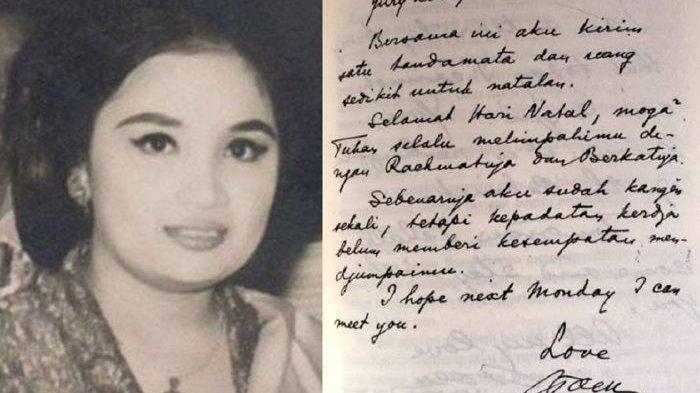 Bersama ini aku kirim
satu tandamata dan uang
sedikit untuk natalan.
Selamat Hari Natal, moga²
Tuhan selalu melimpahimu de-
ngan Rachmatnja dan Berkatnja.
Sebenarnja aku sudah kangen
sekali, tetapi kepadatan kerdja
belum memberi kesempatan men-
djumpaimu.
I hope next Monday I can
meet you.
Love